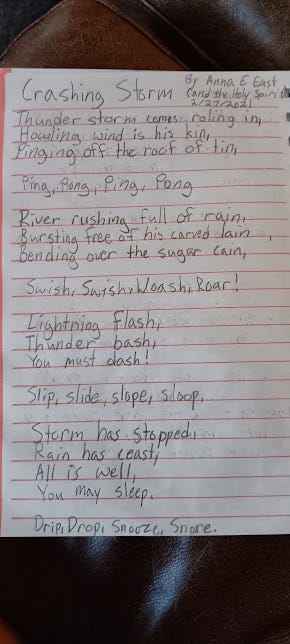 Crashing Storm
By Anna E East
(and the Holy Spirit)
2/27/2021
Thunder storm comes roling in,
Howling wind is his kin,
Pinging off the roof of tin,
Ping, Pong, Ping, Pong
River rushing full of rain,
Bursting free of his carved lain,
Bending over the sugar cain,
Swish, Swish, Woash, Roar!
Lightning flash,
Thunder bash,
You must dash!
Slip, slide, slope, sloop,
Storm has stopped,
Rain has ceast,
All is well,
You may sleep.
Drip, Drop, Snooze, Snore.